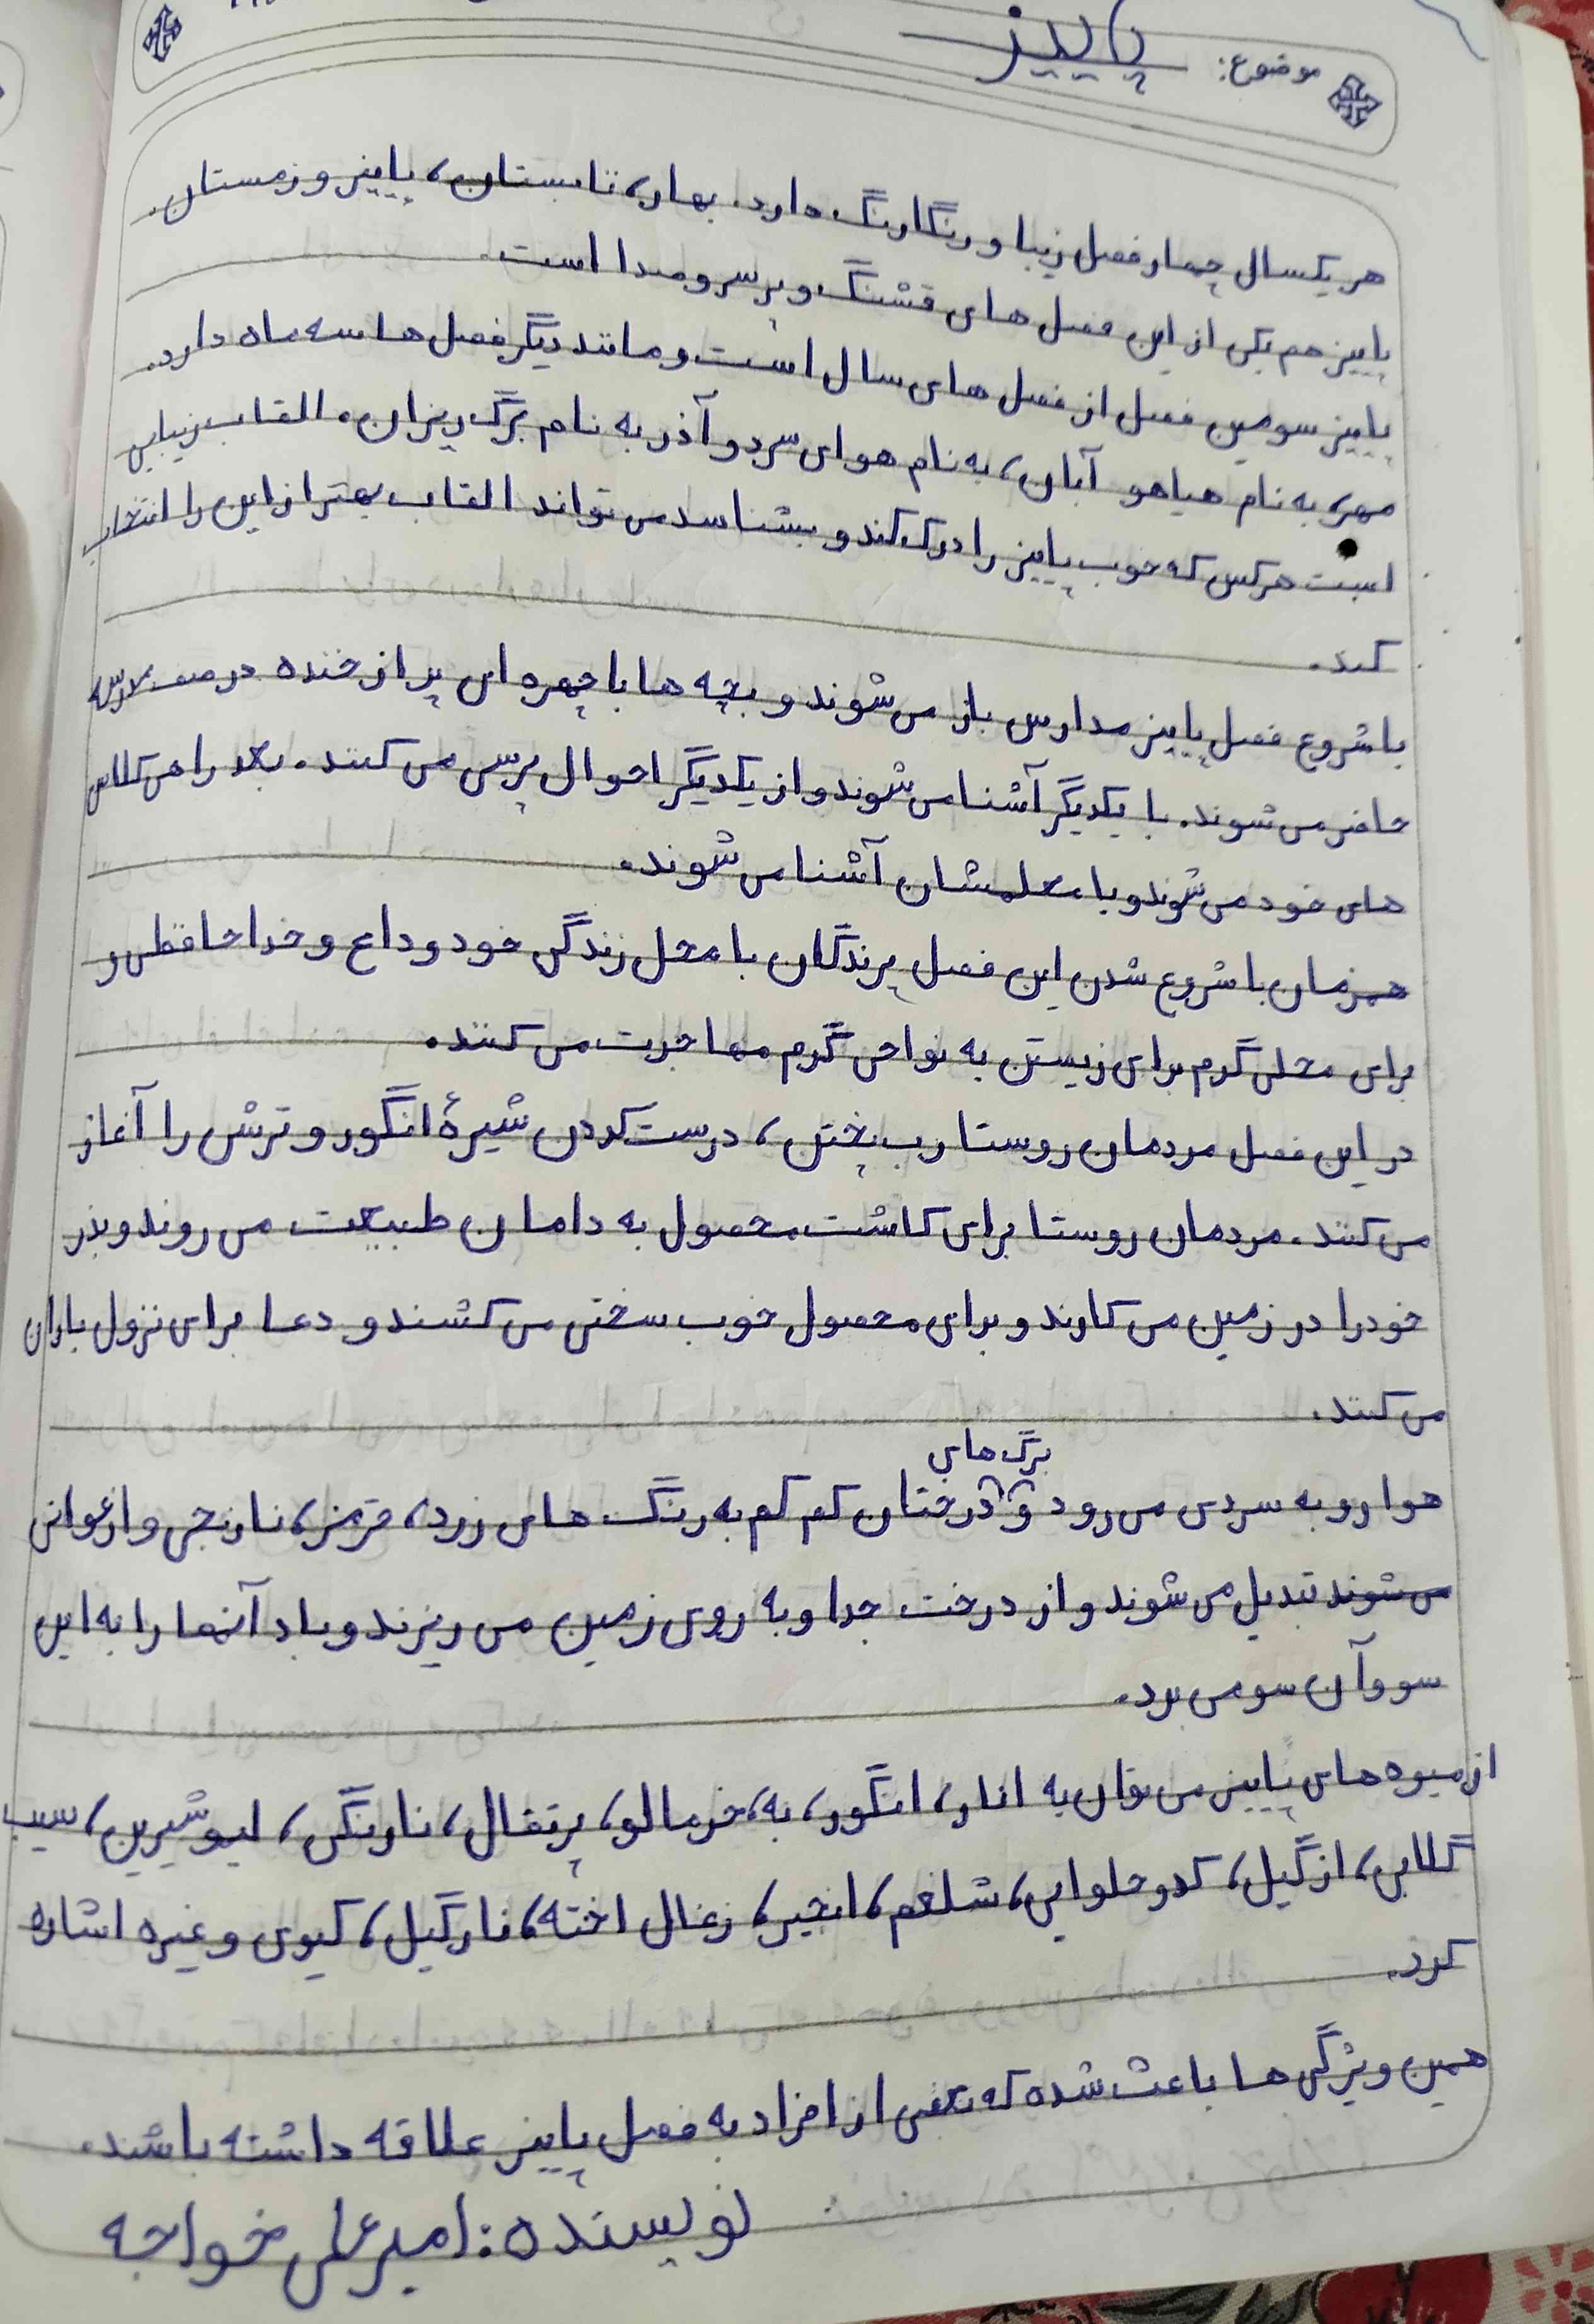 موضوع: پاییز
هر یکسال چهار فصل زیبا و رنگارنگ دارد. بهار، تابستان، پاییز و زمستان.
پاییز هم یکی از این فصل های قشنگ و پر سر و صدا است.
پاییز سومین فصل از فصل های سال است و مانند دیگر فصل ها سه ماه دارد.
مهر، به نام هیاهو آبان، به نام هوای سرد و آذر به نام برگ ریزان. القاب زیبایی
است هرکس که خوب پاییز را درک کند و بشناسد می تواند القاب بهتر از این را انتخاب
کند.
با شروع فصل پاییز مدارس باز می شوند و بچه ها با چهره ای پر از خنده در صف مدرسه
حاضر می شوند. با یکدیگر آشنا می شوند و از یکدیگر احوال پرسی می کنند. بعد راهی کلاس
های خود می شوند و با معلمشان آشنا می شوند.
همزمان با شروع شدن این فصل پرندگان با محل زندگی خود وداع و خداحافظی و
برای محلی گرم برای زیستن به نواحی گرم مهاجرت می کنند.
در این فصل مردمان روستا رب پختن، درست کردن شیرهٔ انگور و ترشی را آغاز
می کنند. مردمان روستا برای کاشت محصول به دامان طبیعت می روند و بذر
خود را در زمین می کارند و برای محصول خوب سختی می کشند و دعا برای نزول باران
می کنند.
برگ های
هوا رو به سردی می رود و درختان کم کم به رنگ های زرد، قرمز، نارنجی و ارغوانی
می شوند تبدیل می شوند و از درخت جدا و به روی زمین می ریزند و باد آنها را به این
سو و آن سو می برد.
از میوه های پاییز می توان به انار، انگور، به، خرمالو، پرتقال، نارنگی، لیمو شیرین، سیب
گلابی، ازگیل، کدو حلوایی، شلغم، انجیر، زغال اخته، نارگیل، کیوی و غیره اشاره
کرد.
همین ویژگی ها باعث شده که بعضی از افراد به فصل پاییز علاقه داشته باشند.
نویسنده: امیرعلی خواجه